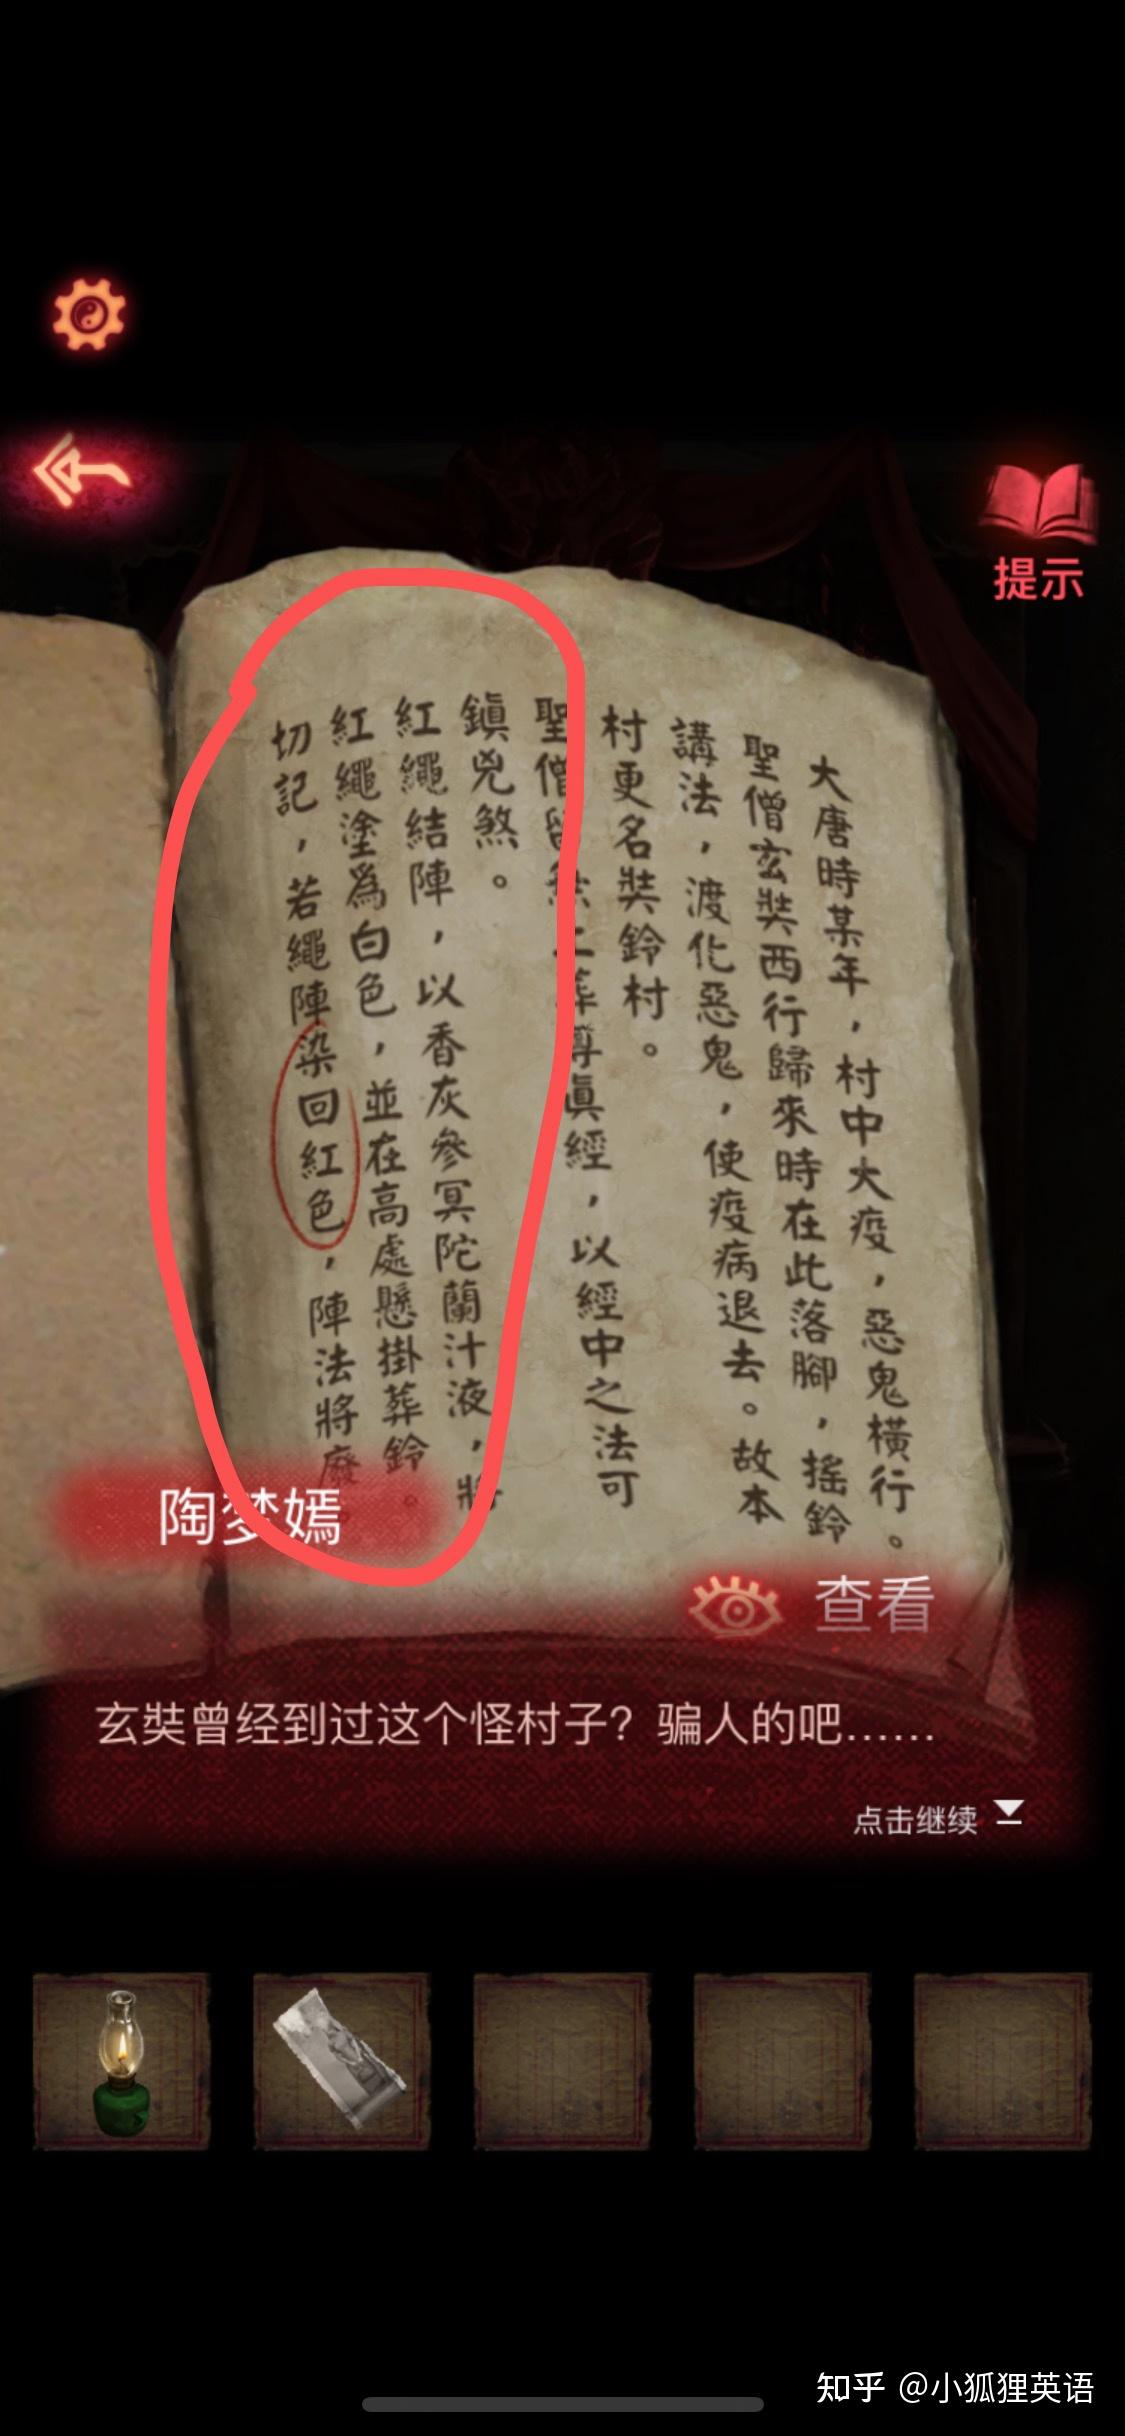 提示
大唐時某年，村中大疫，惡鬼橫行。
聖僧玄奘西行歸來時在此落腳，搖鈴
講法，渡化惡鬼，使疫病退去。故本
村更名奘鈴村。
聖僧留無上葬尊真經，以經中之法可
鎮兇煞。
紅繩結陣，以香灰參冥陀蘭汁液，將
紅繩塗爲白色，並在高處懸掛葬鈴。
切記，若繩陣染回紅色，陣法將廢
陶梦嫣
查看
玄奘曾经到过这个怪村子？骗人的吧……
点击继续
知乎 @小狐狸英语